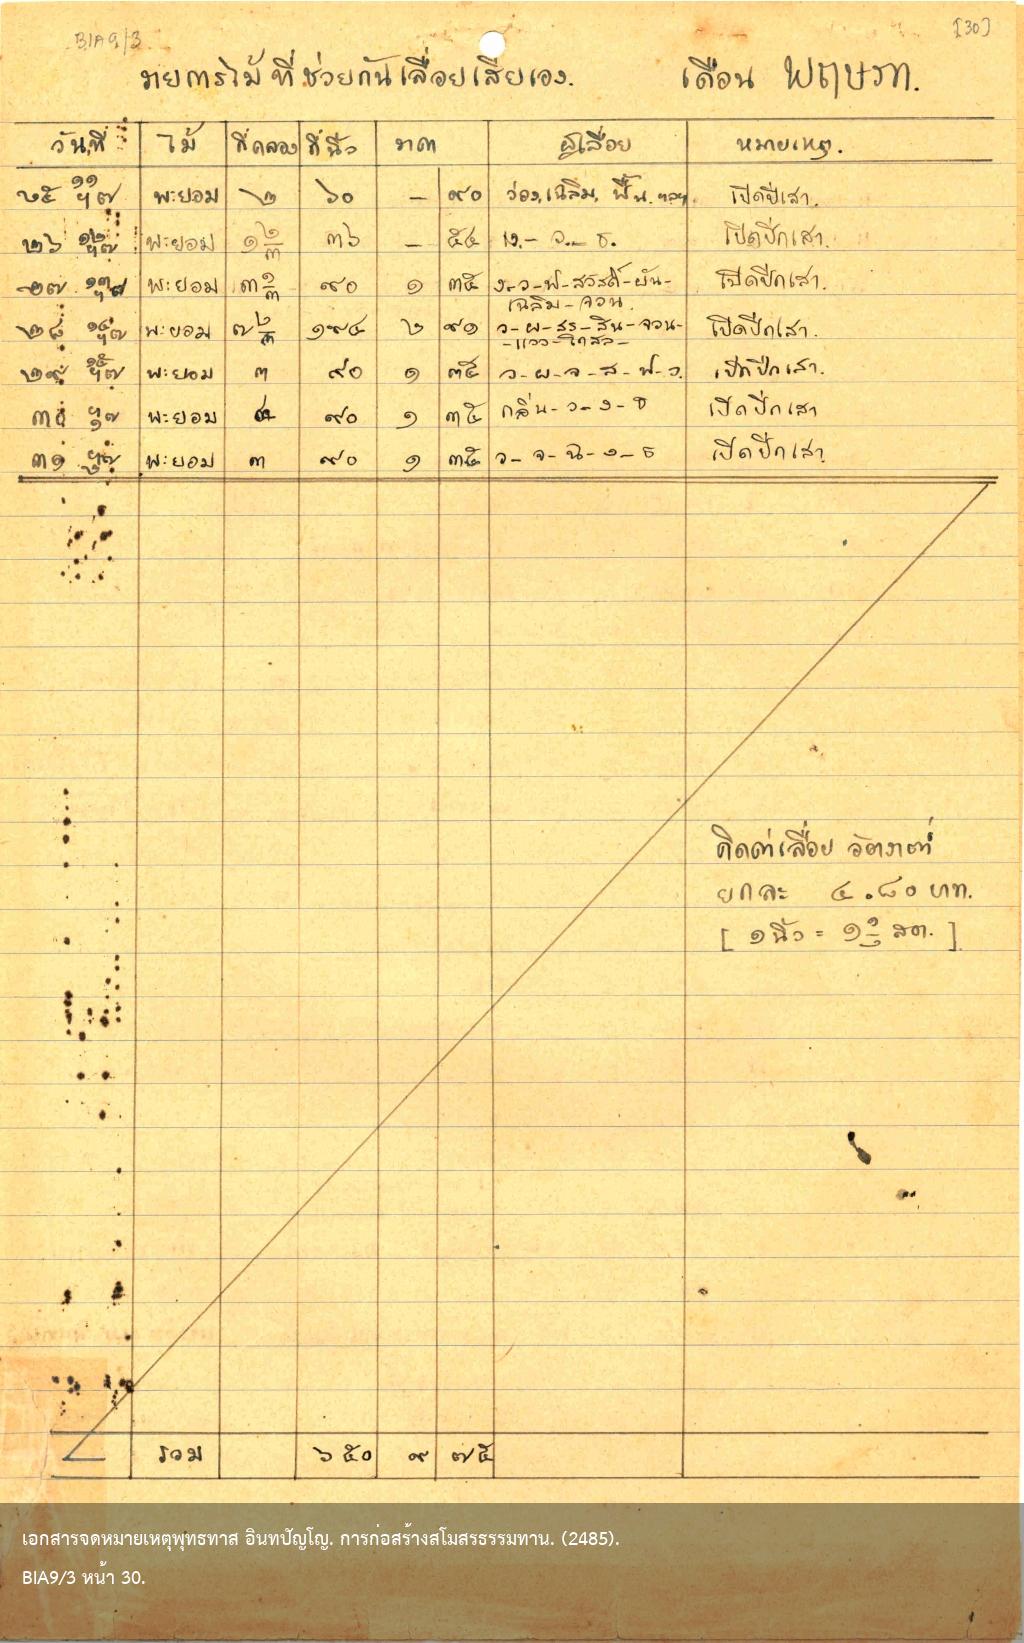 BIA9/3
[30]
รายการไม้ที่ช่วยกันเลื่อยเสียเอง. เดือน พฤษภา.
วันที่ ไม้ ที่คลอง ที่นิ้ว ราคา ผู้เลื่อย หมายเหตุ.
๒๕ ๑๑ ฯ ๗ พะยอม ๒ ๖๐ – ๙๐ ว่อง, เฉลิม, ฟื้น. ฯลฯ เปิดปีกเสา.
๒๖ ๑๒ ฯ ๗ พะยอม ๑ ๒/๓ ๓๖ – ๕๔ เปิดปีกเสา.
๒๗ ๑๓ ฯ ๗ พะยอม ๓ ๑/๓ ๙๐ ๑ ๓๕ ง-ว-ฟ-สวัสดิ์-ผัน- เปิดปีกเสา.
เฉลิม-จวน.
๒๘ ๑๔ ฯ ๗ พะยอม ๗ ๒/๓ ๑๙๔ ๒ ๙๑ ว-ผ-สร-สิน-จวน- เปิดปีกเสา.
-แวว-โกศล-
๒๙ ๑๕ ฯ ๗ พะยอม ๓ ๙๐ ๑ ๓๕ ว-ผ-จ-ส-ฟ-ว. เปิดปีกเสา.
๓๐ ฯ ๑ ๗ พะยอม ๔ ๙๐ ๑ ๓๕ กลิ่น-ว-ง-ธ เปิดปีกเสา
๓๑ ฯ ๒ ๗ พะยอม ๓ ๙๐ ๑ ๓๕ ว-จ-ฉ-ง-ธ เปิดปีกเสา.
คิดค่าเลื่อย อัตราต่ำ
ยกละ ๔.๘๐ บาท.
[ ๑ นิ้ว = ๑ ๑/๒ สต. ]
รวม ๖๕๐ ๙ ๗๕
เอกสารจดหมายเหตุพุทธทาส อินทปัญโญ. การก่อสร้างสโมสรธรรมทาน. (2485).
BIA9/3 หน้า 30.